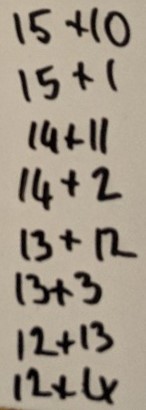 15+10
15+1
14+11
14+2
13+12
13+3
12+13
12+4